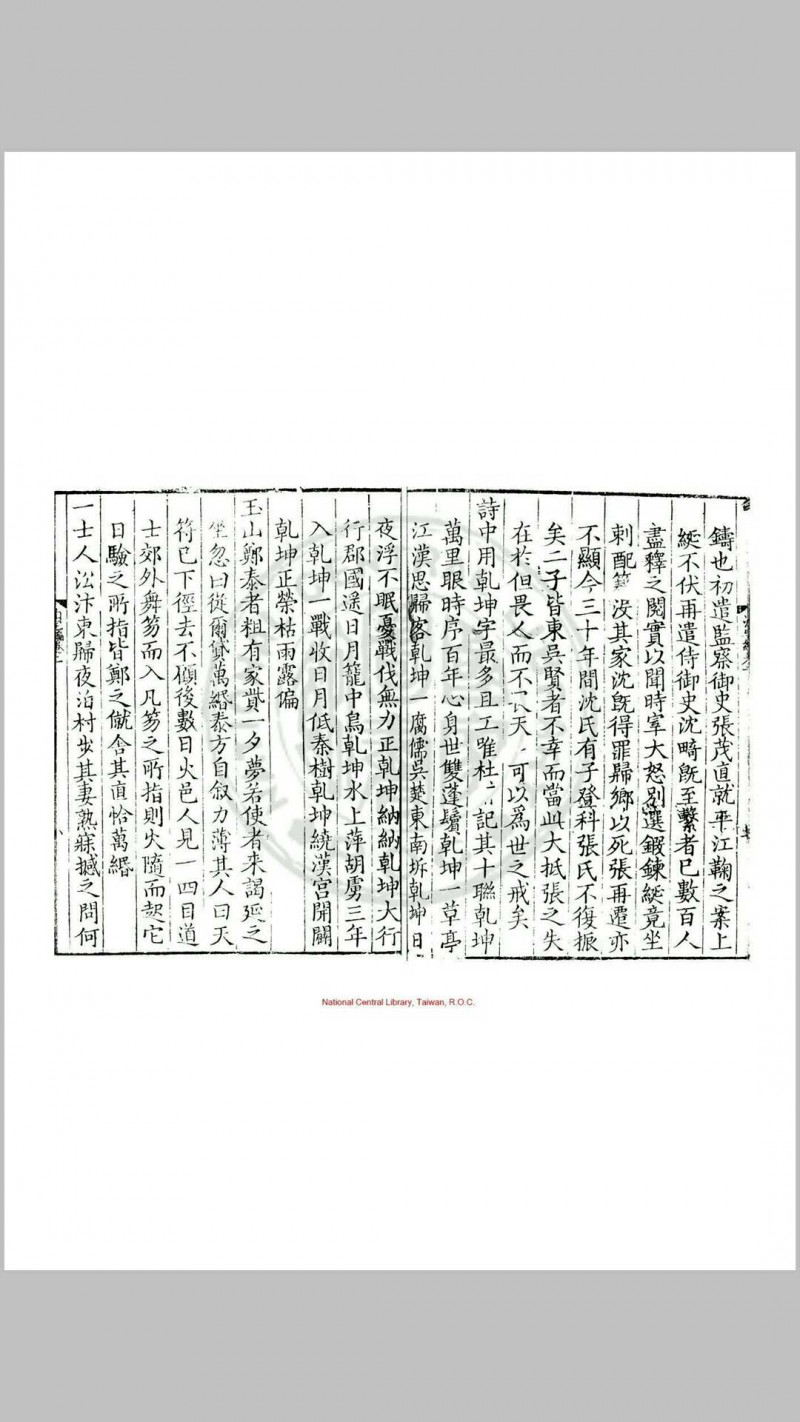 鑄也初遣監察御史張茂直就平江鞫之案上
綖不伏再遣侍御史沈畸旣至繫者已數百人
盡釋之閱實以聞時宰大怒别選鍛鍊綖竟坐
刺配籍没其家沈旣得罪歸鄉以死張再遷亦
不顯今三十年間沈氏有子登科張氏不復振
矣二子皆東吳賢者不幸而當此大抵張之失
在於但畏人而不天可以爲世之戒矣
詩中用乾坤字最多且工唯杜記其十聯乾坤
萬里眼時序百年心身世雙蓬鬢乾坤一草亭
江漢思歸客乾坤一腐儒吳楚東南坼乾坤日
夜浮不眠憂戰伐無力正乾坤納納乾坤大行
行郡國遥日月籠中鳥乾坤水上萍胡虜三年
入乾坤一戰收日月低秦樹乾坤繞漢宫開闢
乾坤正榮枯雨露偏
玉山鄭泰者粗有家貲一夕夢若使者来謁延之
坐忽曰從爾貸萬緡泰方自叙力薄其人曰天
符已下徑去不顧後數日火邑人見一四目道
士郊外舞笏而入凡笏之所指則火隨而起它
日驗之所指皆鄭之僦舍其直恰萬緡
一士人沿汴東歸夜泊村步其妻熟寐撼之問何
National Central Library, Taiwan, R.O.C.